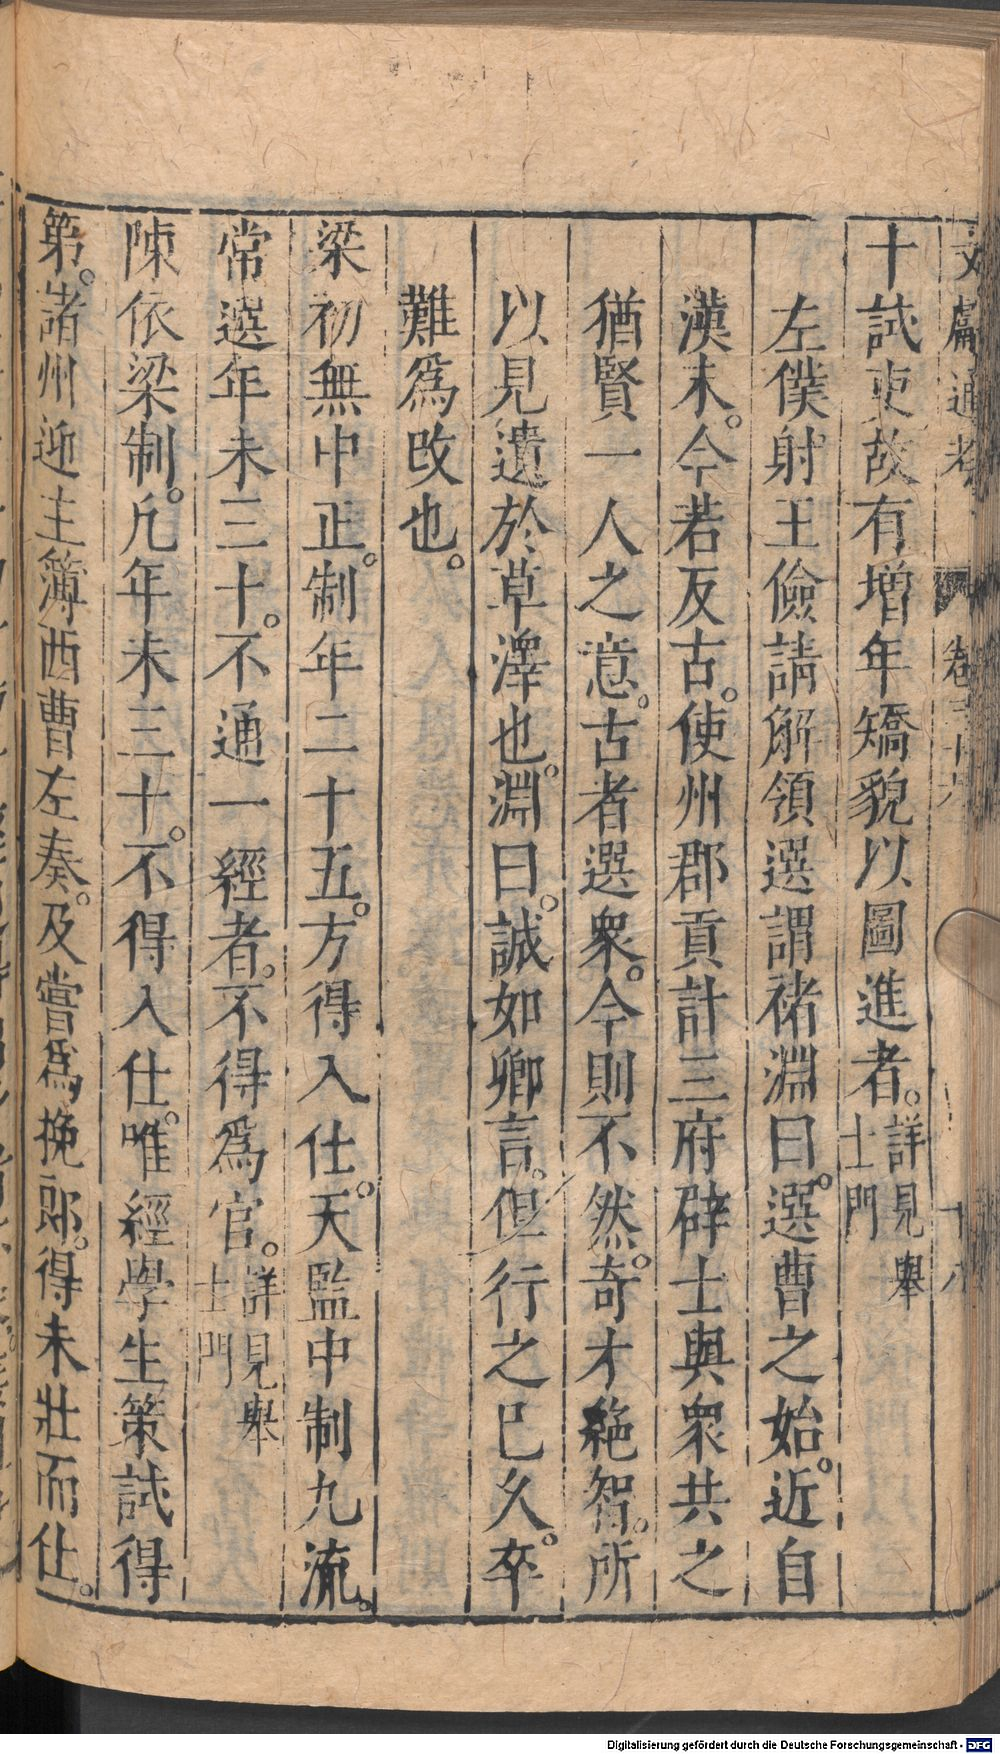 文獻通考 卷三十六 十八
十試吏故有增年矯貌以圖進者。詳見舉士門
左僕射王儉請解領選謂褚淵曰。選曹之始。近自
漢末。今若反古。使州郡貢計三府辟士與衆共之
猶賢一人之意。古者選衆。今則不然。奇才絶智。所
以見遺於草澤也。淵曰。誠如卿言。但行之已久。卒
難爲改也。
梁初無中正。制年二十五。方得入仕。天監中制九流。
常選年未三十。不通一經者。不得爲官。詳見舉士門
陳依梁制。凡年未三十。不得入仕。唯經學生策試得
第。諸州迎主簿西曹左奏。及嘗爲挽郎。得未壯而仕。
Digitalisierung gefördert durch die Deutsche Forschungsgemeinschaft - DFG